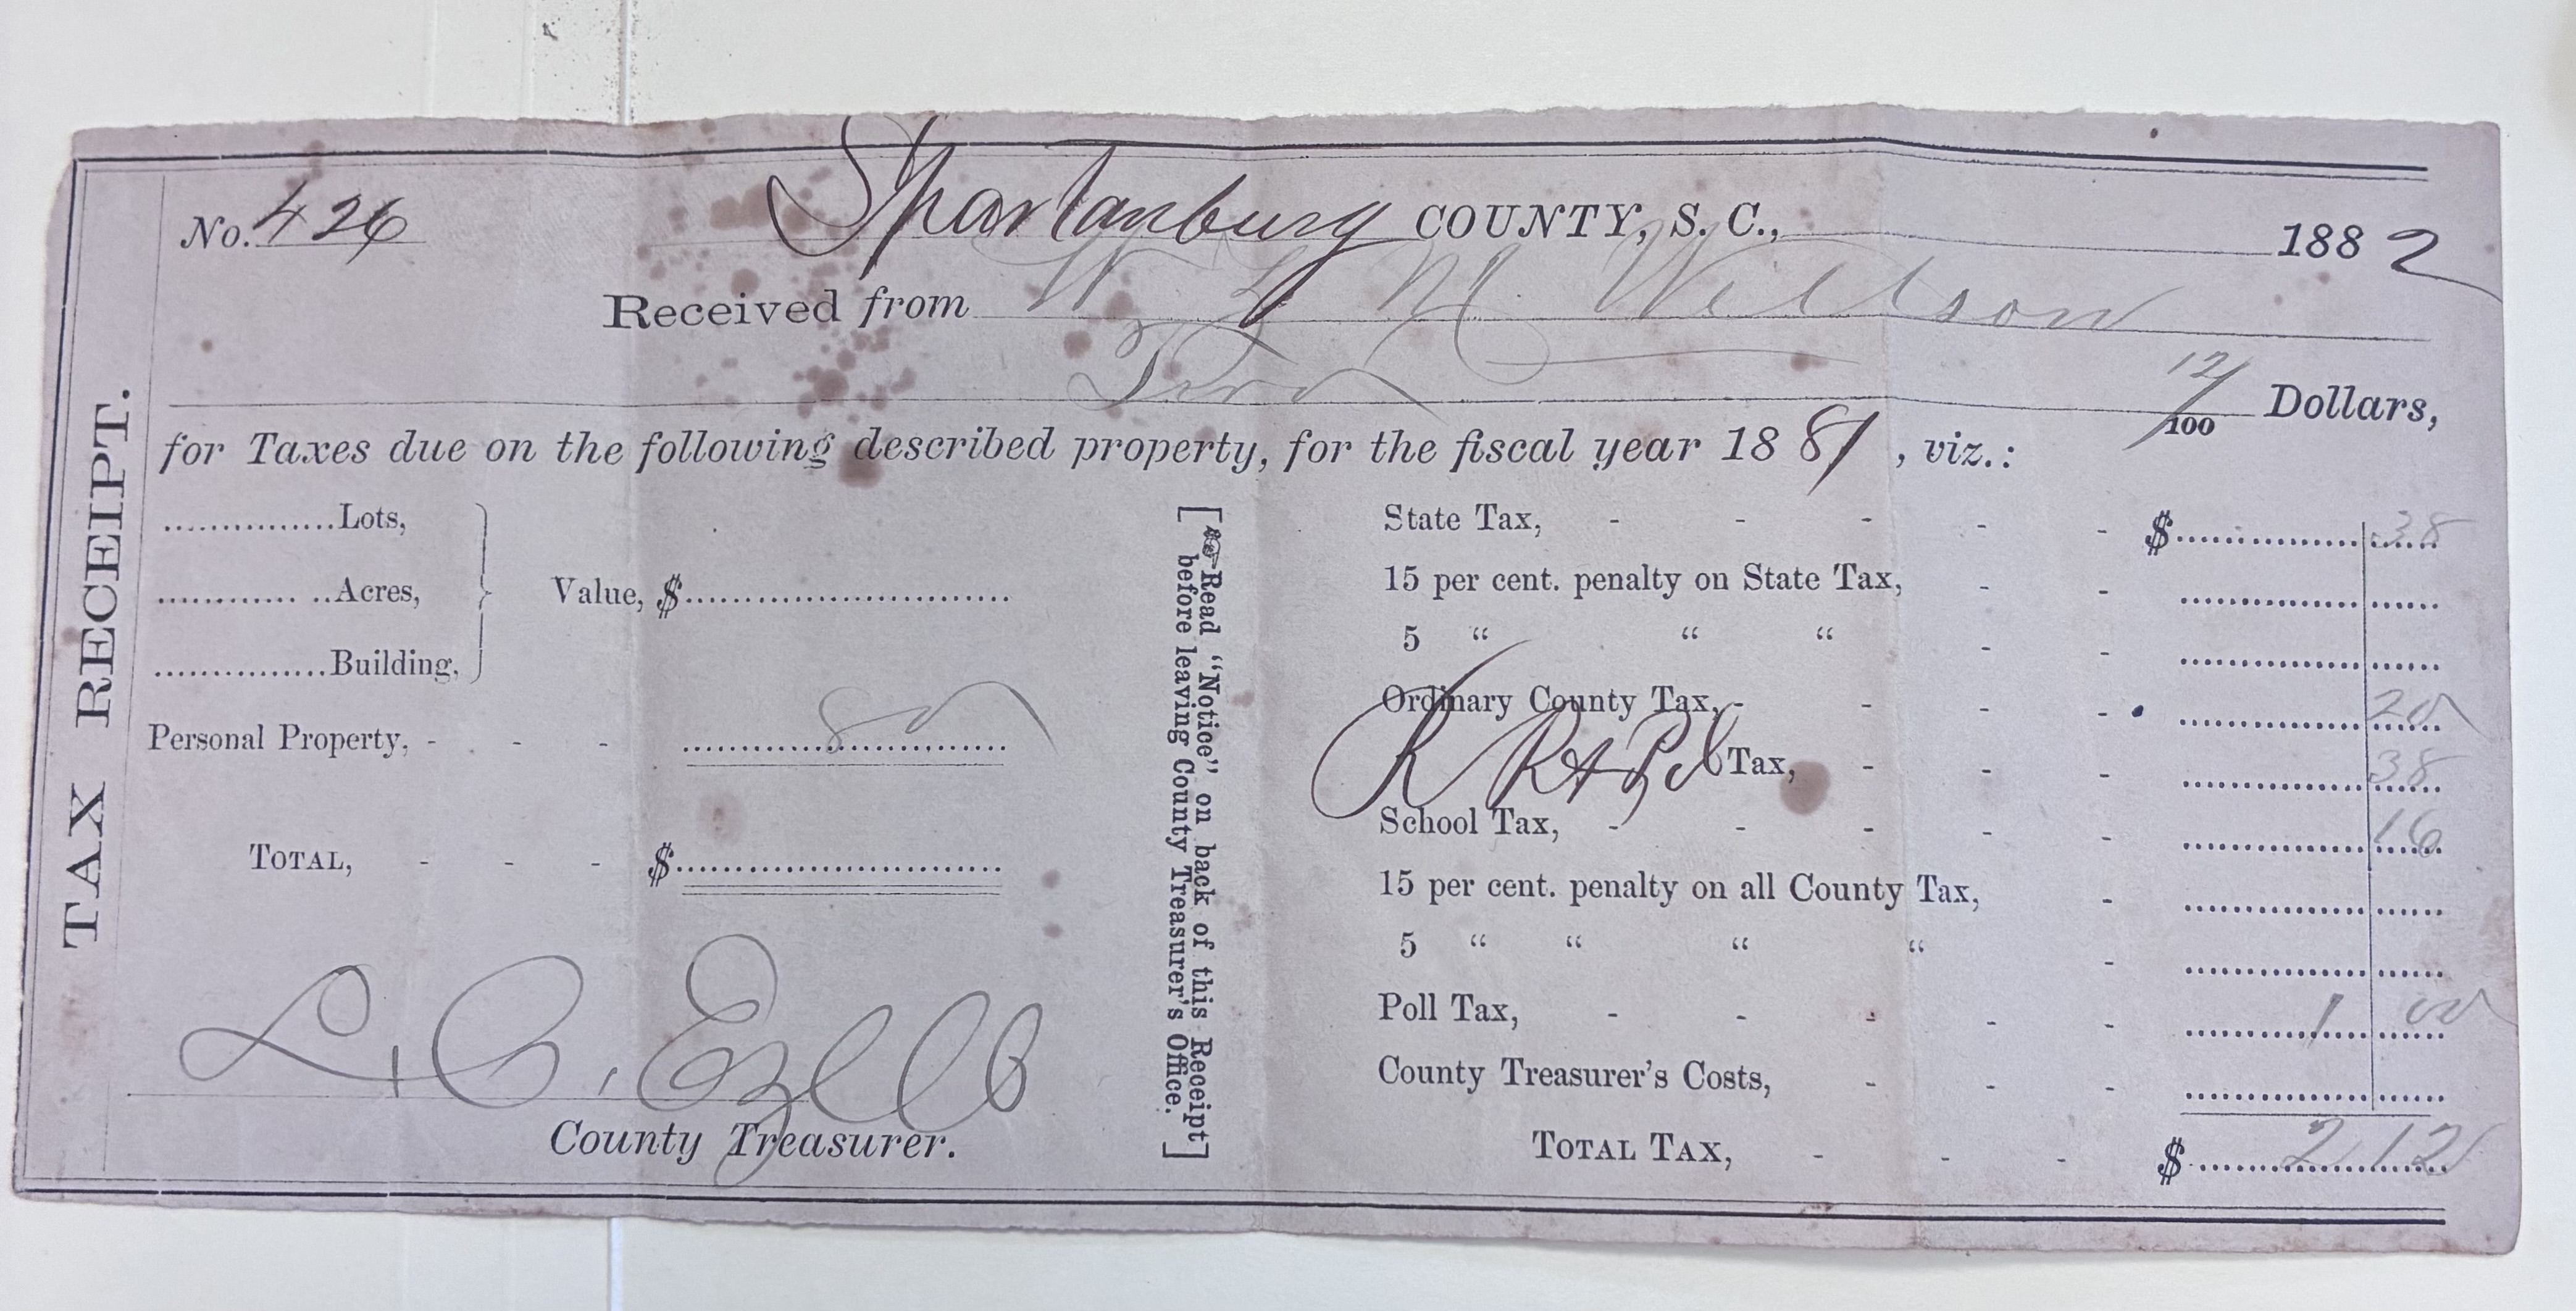 TAX RECEIPT.
No. 426
Spartanburg COUNTY, S. C., 1882
Received from W L M. Willson
Two 12/100 Dollars,
for Taxes due on the following described property, for the fiscal year 1881, viz.:
Lots,
Acres,
Building,
Value, $
Personal Property, - - - 80
TOTAL, - - - $
L. C. Ezell
County Treasurer.
[☞Read "Notice" on back of this Receipt
before leaving County Treasurer's Office.]
State Tax, - - - - - $ 38
15 per cent. penalty on State Tax, - -
5 “ “ “ - -
Ordinary County Tax, - - - - 20
R R & Tax, - - - 38
School Tax, - - - - - 16
15 per cent. penalty on all County Tax, -
5 “ “ “ “ -
Poll Tax, - - - - - 1 00
County Treasurer's Costs, - - -
TOTAL TAX, - - - $ 2 12